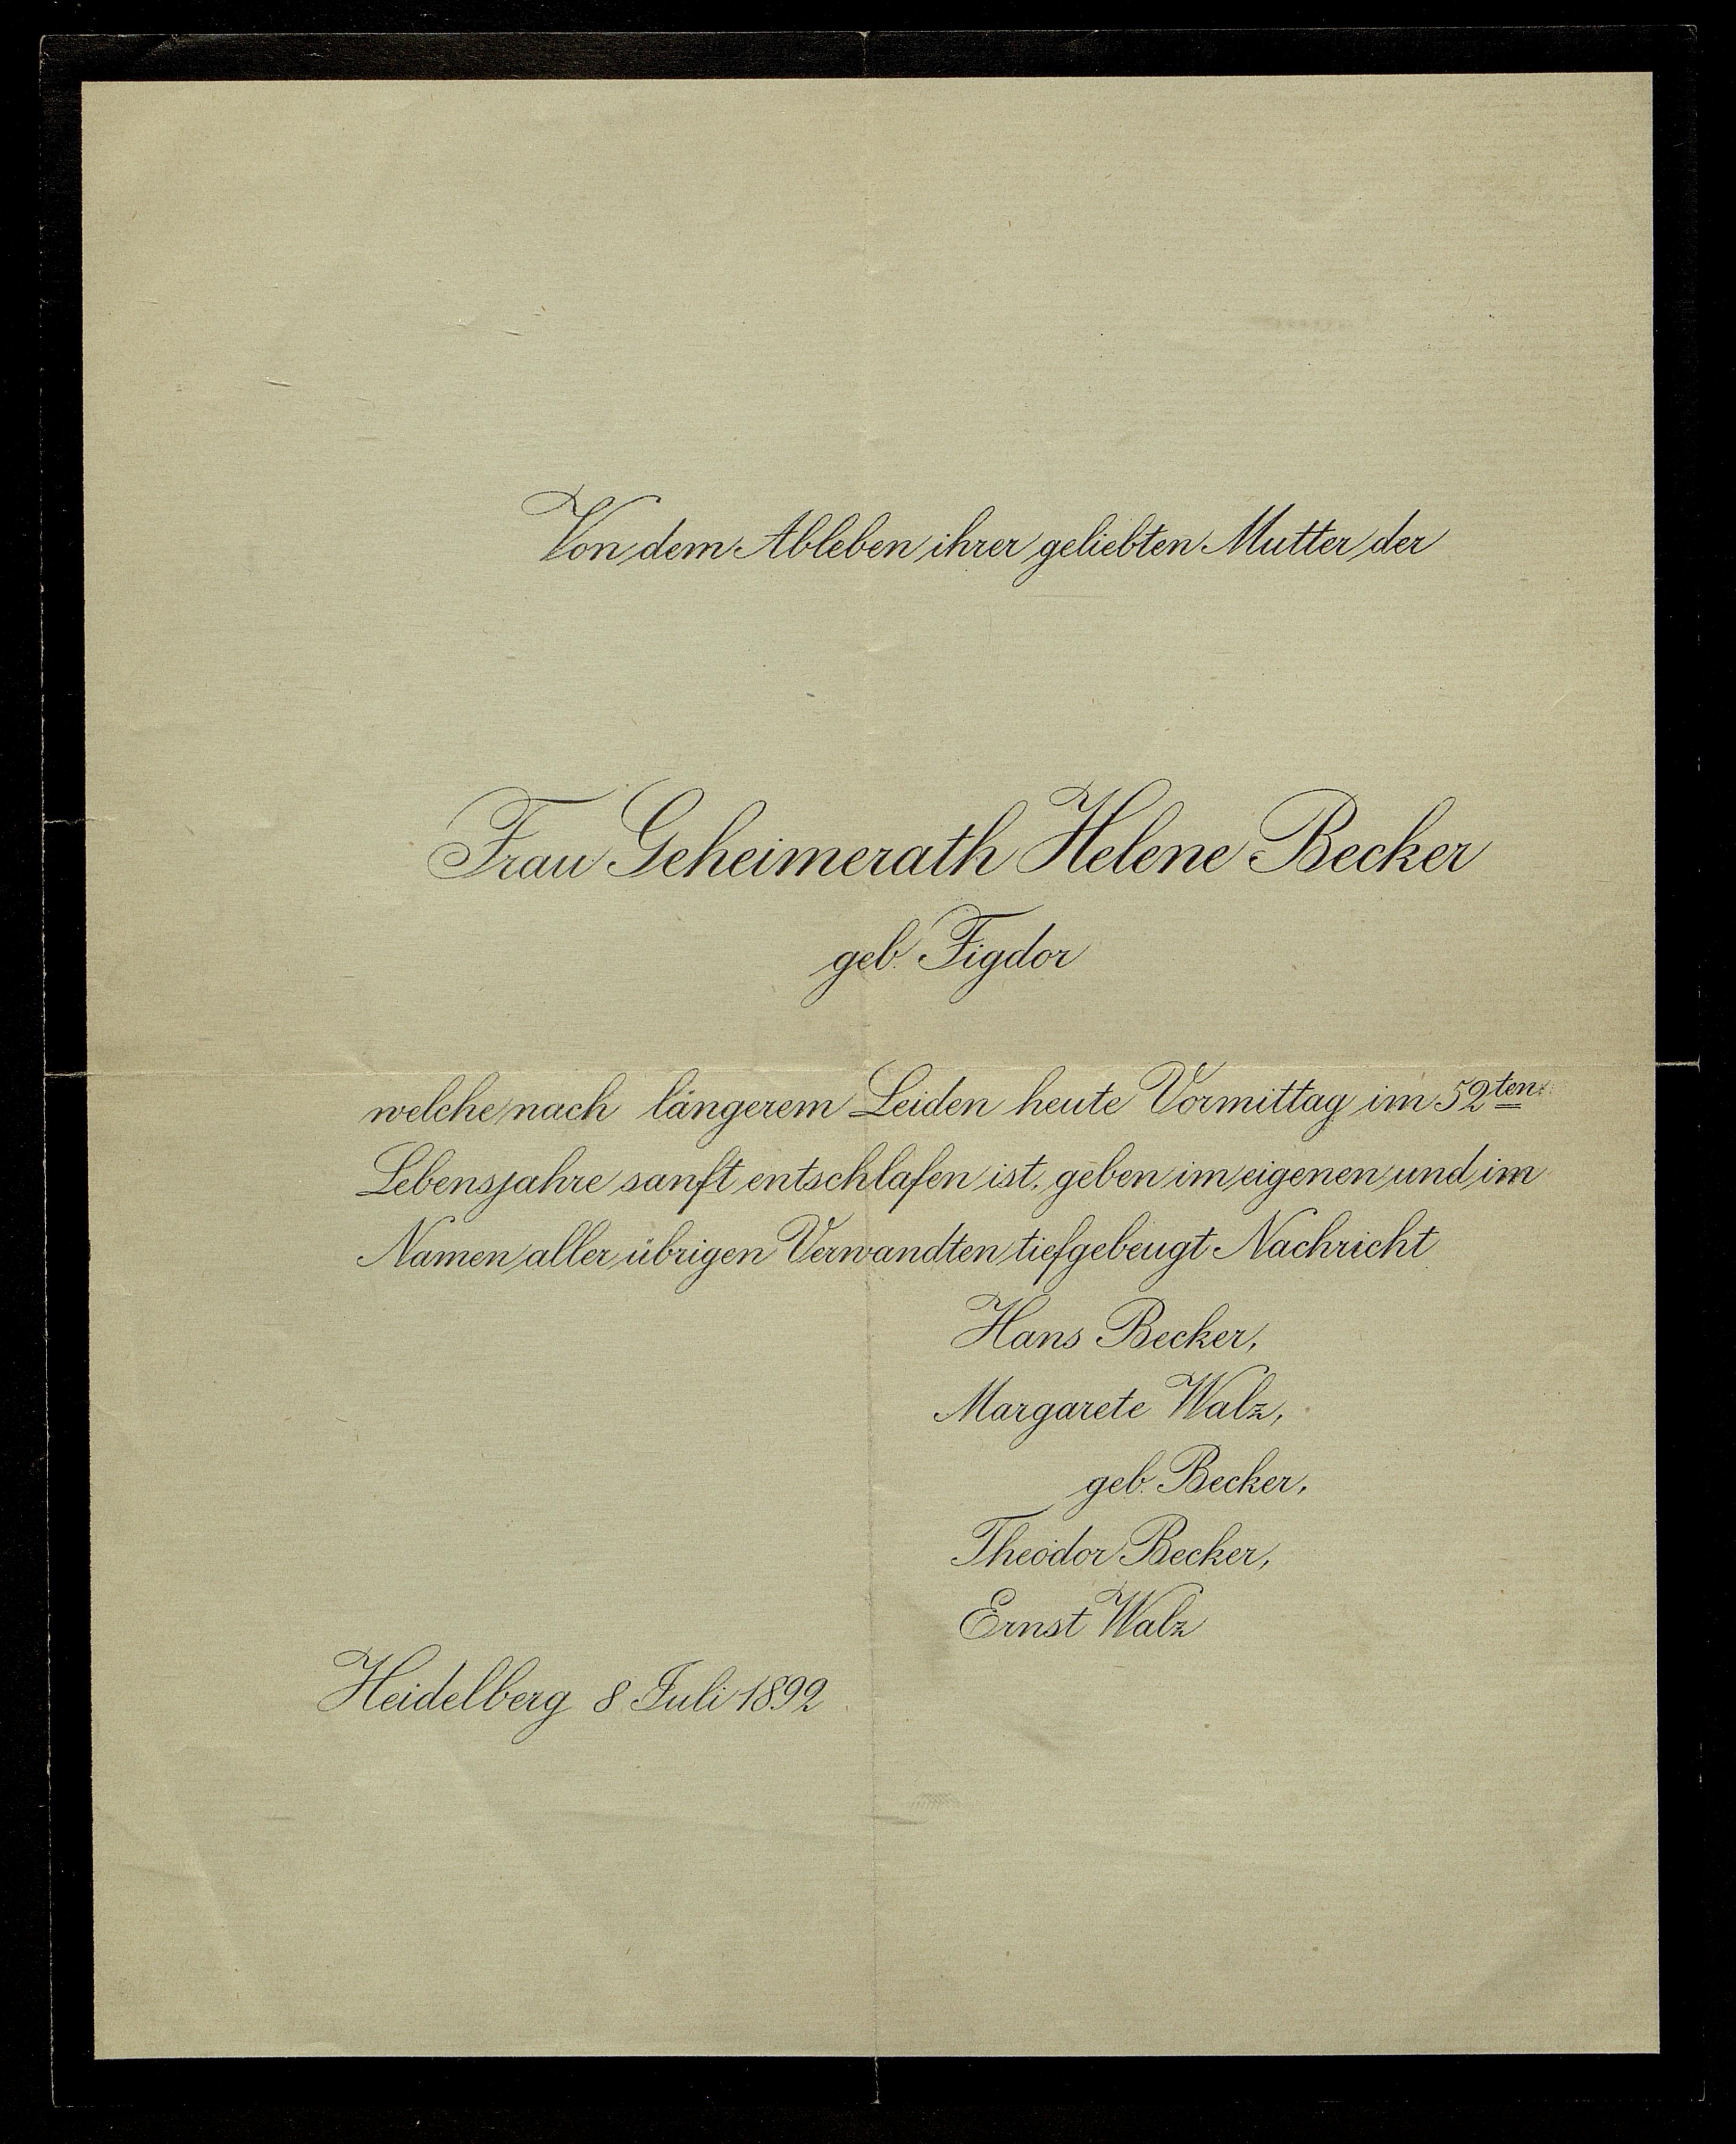 Von dem Ableben ihrer geliebten Mutter der
Frau Geheimerath Helene Becker
geb. Figdor
welche nach längerem Leiden heute Vormittag im 52ten
Lebensjahre sanft entschlafen ist, geben im eigenen und im
Namen aller übrigen Verwandten tiefgebeugt Nachricht
Hans Becker,
Margarete Walz,
geb. Becker,
Theodor Becker,
Ernst Walz
Heidelberg 8 Juli 1892